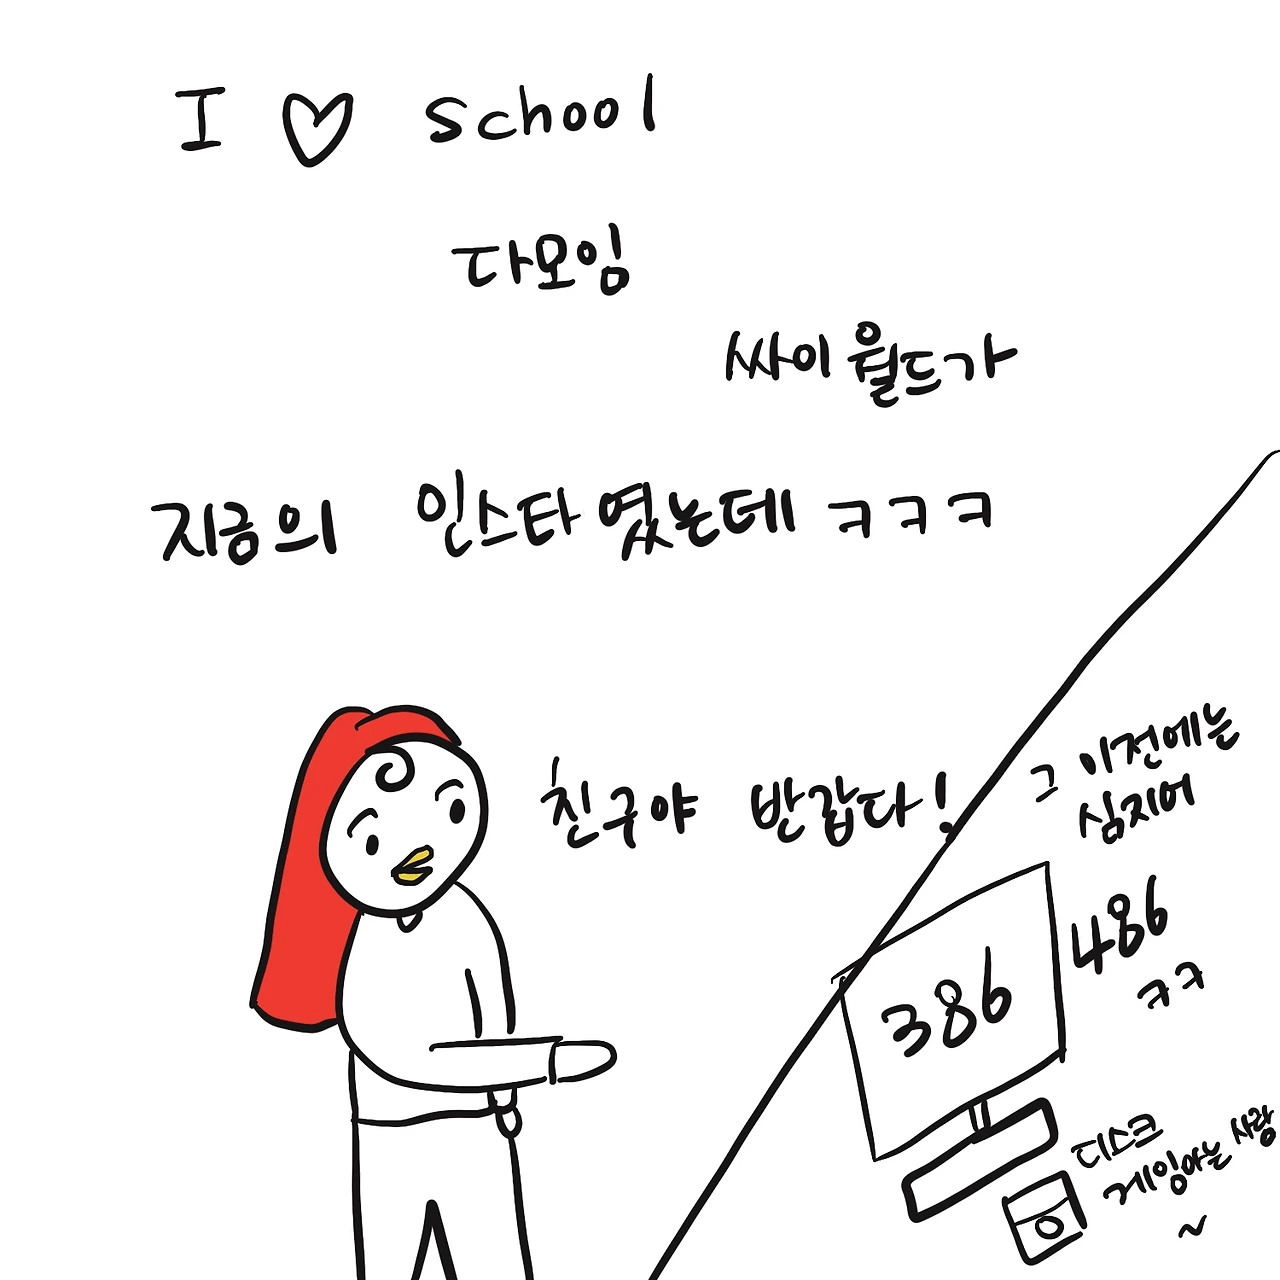 I ♡ school
다모임
싸이월드가
지금의 인스타였는데 ㅋㅋㅋ
친구야 반갑다!
그 이전에는
심지어
386
486
ㅋㅋ
디스크
게임아는 사람
~